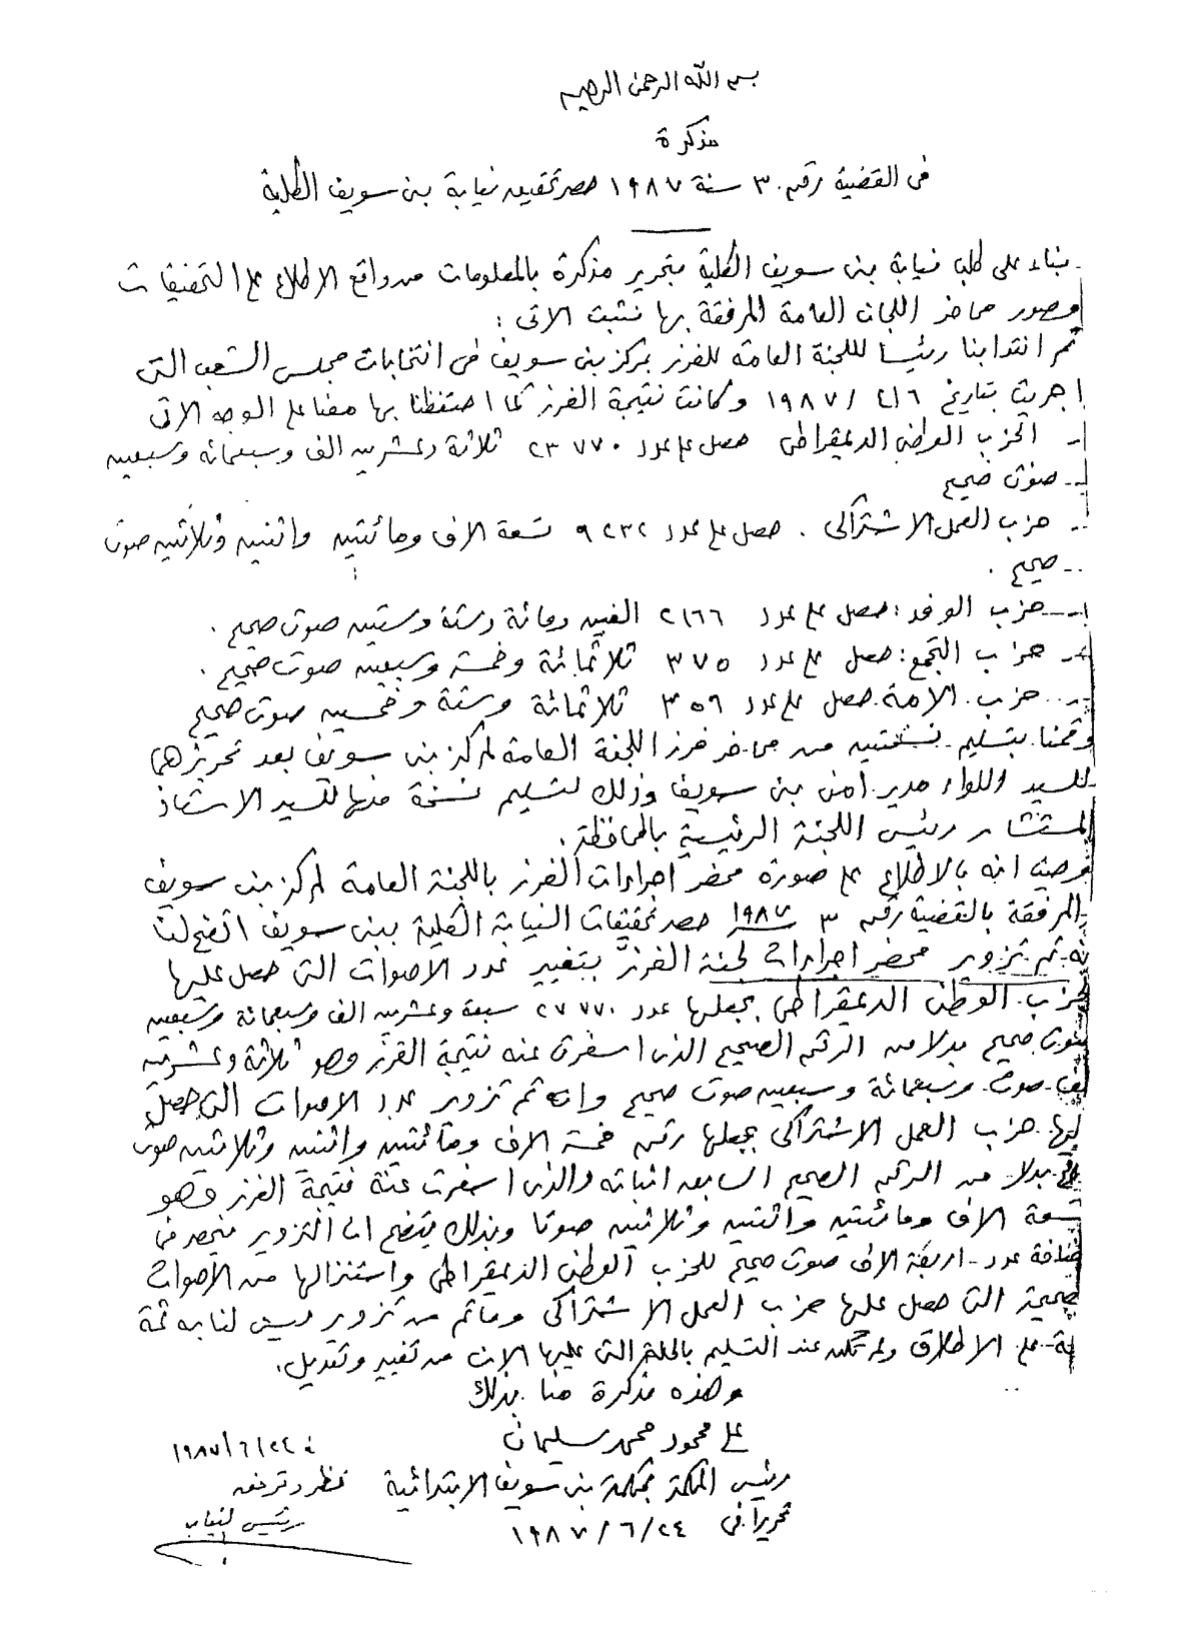 بسم الله الرحمن الرحيم
مذكرة
فى القضية رقم ٣٠ سنة ١٩٨٧ حصر تحقيق نيابة بنى سويف الكلية
بناء على طلب نيابة بنى سويف الكلية بتحرير مذكرة بالمعلومات من واقع الاطلاع على التحقيقات
وصور محاضر اللجان العامة المرفقة بها نثبت الاتى :
تم انتدابنا رئيسا للجنة العامة للفرز بمركز بنى سويف فى انتخابات مجلس الشعب التى
اجريت بتاريخ ٤/٦/ ١٩٨٧ وكانت نتيجة الفرز كما احتفظنا بها معنا على الوجه الاتى
- الحزب الوطنى الديمقراطى حصل على عدد ٢٣٧٧٠ ثلاثة وعشرين الف وسبعمائه وسبعين
صوت صحيح
- حزب العمل الاشتراكى . حصل على عدد ٩٢٣٢ تسعة الاف ومائتين واثنين وثلاثين صوت
صحيح .
- حزب الوفد : حصل على عدد ٢١٦٦ الفين ومائة وستة وستين صوت صحيح .
- حزب التجمع : حصل على عدد ٣٧٥ ثلاثمائة وخمسة وسبعين صوت صحيح .
- حزب الامة حصل على عدد ٣٥٦ ثلاثمائة وستة وخمسين صوت صحيح
وقمنا بتسليم نسختين من محاضر فرز اللجنة العامة لمركز بنى سويف بعد تحريرهما
للسيد اللواء مدير امن بنى سويف وذلك لتسليم نسخة منها للسيد الاستاذ
المستشار رئيس اللجنة الرئيسية بالمحافظة .
وحيث انه بالاطلاع على صورة محضر اجراءات الفرز باللجنة العامة لمركز بنى سويف
المرفقة بالقضية رقم ٣ ١٩٨٧ حصر تحقيقات النيابة الكلية ببنى سويف اتضح لنا
انه تم تزوير محضر اجراءات لجنة الفرز بتغيير عدد الاصوات التى حصل عليها
حزب الوطنى الديمقراطى بجعلها عدد ٢٧٧٧٠ سبعة وعشرين الف وسبعمائة وسبعين
صوت صحيح بدلا من الرقم الصحيح الذى اسفرت عنه نتيجة الفرز وهو ثلاثة وعشرين
الف صوت وسبعمائة وسبعين صوت صحيح وانه تم تزوير عدد الاصوات التى حصل
عليها حزب العمل الاشتراكى بجعلها رقم خمسة الاف ومائتين واثنين وثلاثين صوت
صحيح بدلا من الرقم الصحيح السابق اثباته والذى اسفرت عنه نتيجة الفرز وهو
تسعة الاف ومائتين واثنين وثلاثين صوتا وبذلك يتضح ان التزوير ينحصر فى
اضافة عدد اربعة الاف صوت صحيح للحزب الوطنى الديمقراطى واستنزالها من الاصوات
الصحيحة التى حصل عليها حزب العمل الاشتراكى وماتم من تزوير ليس لنا به ثمة
صلة على الاطلاق ولم تكن عند التسليم بالحالة التى عليها الان من تغيير وتعديل .
وهذه مذكرة منا بذلك
على محمود محمد سليمان
رئيس المحكمة بمحكمة بنى سويف الابتدائية
تحريرا فى ٢٤/٦/١٩٨٧
فى ٢٤/٦/١٩٨٧
نظر وترفق
رئيس النيابة